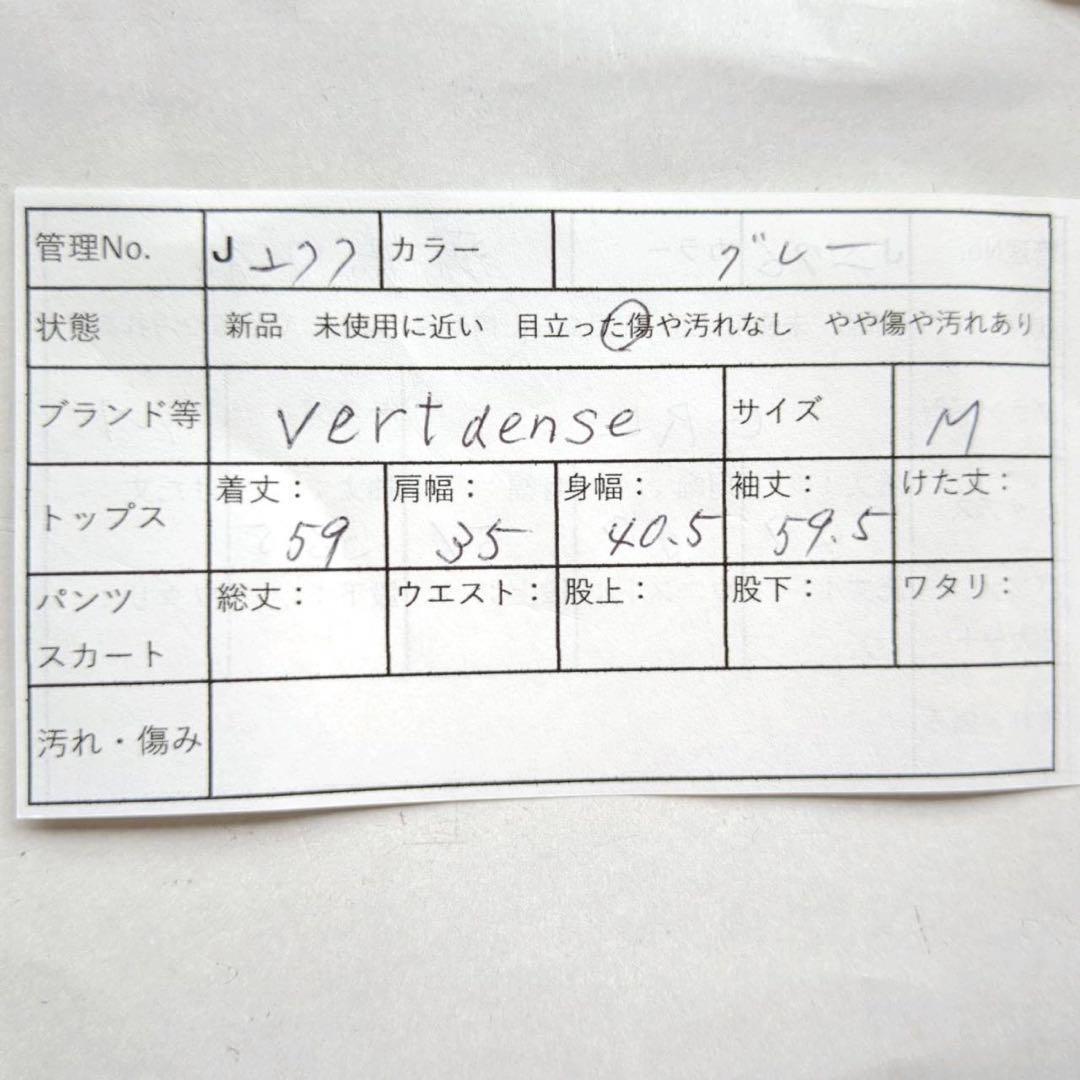 管理No. J 277 カラー グレー
状態 新品 未使用に近い 目立った傷や汚れなし やや傷や汚れあり
ブランド等 vert dense サイズ M
トップス 着丈： 59 肩幅： 35 身幅： 40.5 袖丈： 59.5 けた丈：
パンツ スカート 総丈： ウエスト： 股上： 股下： ワタリ：
汚れ・傷み